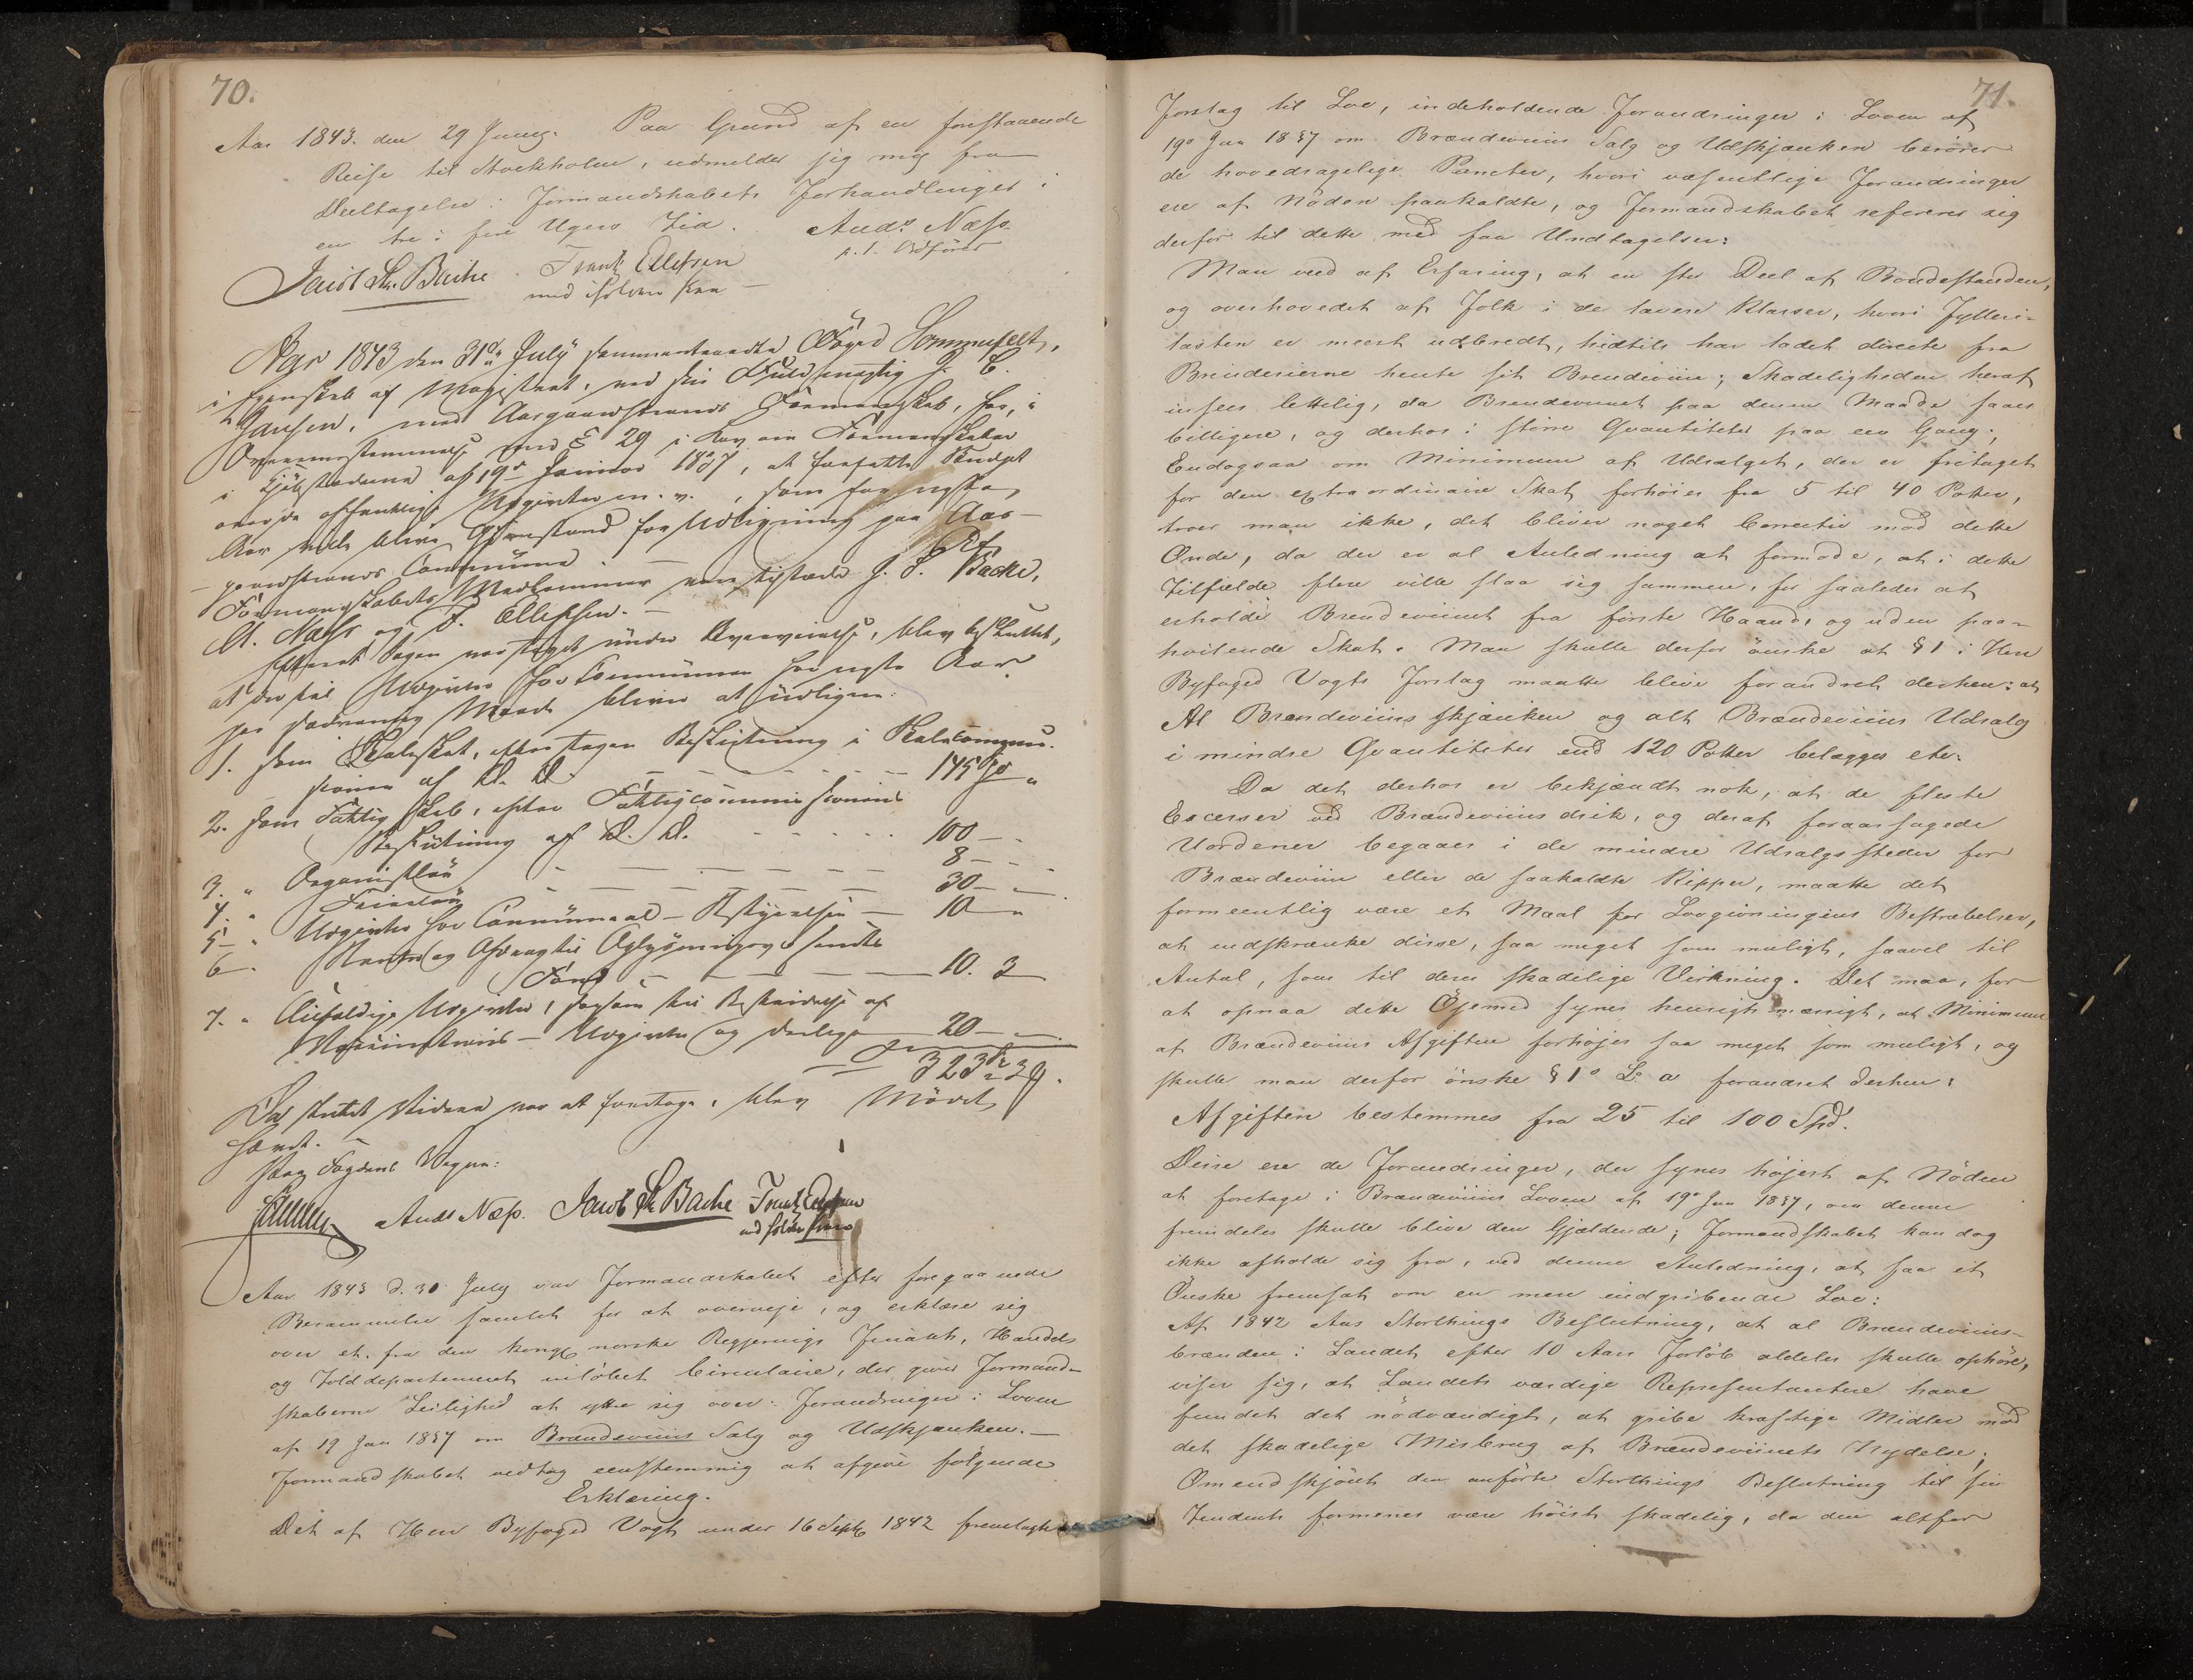 70.
Aar 1843. den 29 Juny. Paa Grund af en forestaaende
Reise til Stockholm, udmelder jeg mig fra
Deeltagelse i Formandskabets Forhandlinger i
en tre i fire Ugers Tid. Ands Næss.
p. t. Ordförer
Jacob St. Bache Frantz Ellefsen
med iholden Pen
Aar 1843 den 31te July sammentraadte Foged Sommerfelt,
i Egenskab af Magistrat, ved sin Fuldmægtig J. C.
Jansen, med Aasgaardstrands Formandskab, for, i
Overeensstemmelse med § 29 i Lov om Formandskaber
i Kjöbstæderne af 19de Januar 1837, at forfatte Budget
over de offentlige Udgifter m. v., som for næste
Aar ville blive Gjenstand for Udligning paa Aas-
gaardstrands Commune. -
Af Formandskabets Medlemmer vare tilstæde J. S. Bache,
A. Næss og F. Ellefsen. -
Efterat Sagen var taget under Overveielse, blev besluttet,
at der til Udgifter for Communen for næste Aar
paa sædvanlig Maade bliver at udligne:
1. som Skoleskat, efter tagen Beslutning i Skolecommis-
sionen af D. D. - - - - - 145 Spd "
2. som Fattigskat, efter Fattigcommissionens
Beslutning af D. D. - - - - - 100 - -
3. " Organistlön - - - - - 8 - -
4. " Feierlön - - - - - 30 - -
5 - " Udgifter for Communal-Bestyrelsen - 10 - "
6 - " Renter og Afdrag til Oplysningsvæsenets
Fond - - - - - 10. 3
7. " Tilfældige Udgifter, saasom til Bestridelse af
- Udgifter og deslige - 20 - -
323 Spd 3 ß.
Da intet videre var at foretage, blev Mödet
hævet. -
Paa Fogdens Vegne:
Jansen Ands Næss. Jacob St Bache Frantz Ellefsen
med iholden Pen
Aar 1843 d. 30 July var Formandskabet efter foregaaende
Berammelse samlet for at overveje, og erklære sig
over et, fra den kongl norske Regjerings Finants, Handels
og Tolddepartement indlöbet Circulaire, der giver Formand-
skaberne Leilighed at yttre sig over: Forandringer i Loven
af 19 Jan 1837 om Brændeviins Salg og Udskjænken. -
Formandskabet vedtog eenstemmig at afgive fölgende
Erklæring.
Det af Herr Byfoged Vogt under 16 Septb 1842 fremlagte
71.
Forslag til Lov, indeholdende Forandringer i Loven af
19de Jan 1837 om Brændeviins Salg og Udskjænken berörer
de hovedsagelige Puncter, hvori væsentlige Forandringer
ere af Nöden paakaldte, og Formandskabet refererer sig
derfor til dette med faa Undtagelser:
Man veed af Erfaring, at en stor Deel af Bondestanden,
og overhovedet af Folk i de lavere Klasser, hvori Fylleri-
lasten er meest udbredt, hidtil har ladet directe fra
Brenderierne hente sit Brendeviin; Skadeligheden heraf
insees lettelig, da Brendevinet paa denne Maade faaes
billigere, og derhos i större Qvantiteter paa een Gang;
Endogsaa om Minimum af Udsalget, der er fritaget
for den extraordinaire Skat forhöies fra 5 til 40 Potter,
troer man ikke, det bliver noget Correctiv mod dette
Onde, da der er al Anledning at formode, at i dette
Tilfælde flere ville slaa sig sammen, for saaledes at
erholde Brendeviinet fra förste Haand, og uden paa-
hvilende Skat. Man skulle derfor önske at § 1 i Herr
Byfoged Vogts Forslag maatte blive forandret derhen: at
Al Brændeviins skjænken og alt Brændeviins Udsalg
i mindre Qvantiteter end 120 Potter belægges etc.
Da det derhos er bekjændt nok, at de fleste
Excesser ved Brændeviins drik, og deraf foraarsagede
Uordener begaaes i de mindre Udsalgs steder for
Brændeviin eller de saakaldte Kipper, maatte det
formeentlig være et Maal for Lovgivningens Bestræbelser,
at indskrænke disse, saa meget som muligt, saavel til
Antal, som til deres skadelige Virkning. Det maa, for
at opnaa dette Öjemed synes hensigtsmæssigt, at Minimum
af Brændeviins Afgiften forhöjes saa meget som muligt, og
skulle man derfor önske § 1o L. a forandret derhen:
Afgiften bestemmes fra 25 til 100 Spd.
Disse ere de Forandringer, der synes höjest af Nöden
at foretage i Brændeviins Loven af 19de Jan 1837, om denne
fremdeles skulle blive den Gjældende; Formandskabet kan dog
ikke afholde sig fra, ved denne Anledning, at faa et
Önske fremsat om en mere indgribende Lov:
Af 1842 Aars Storthings Beslutning, at al Brændeviins-
brænden i Landet efter 10 Aars Forlöb aldeles skulle ophöre,
viser sig, at Landets værdige Repræsentantere have
fundet det nödvændigt, at gribe kraftige Midler mod
det skadelige Misbrug af Brændeviinets Nydelse;
Omendskjönt den anförte Storthings Beslutning til sin
Tendents formenes være höist skadelig, da den altfor